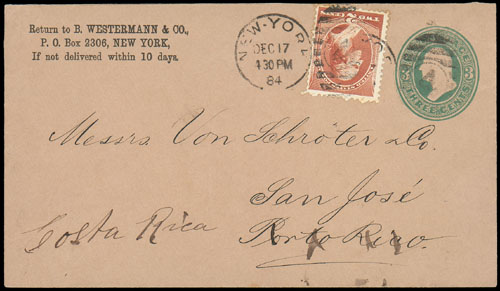 Return to B. WESTERMANN & CO.,
P. O. Box 2306, NEW YORK,
If not delivered within 10 days.
NEW-YORK
DEC 17
430 PM
84
THREE CENTS
3 3
Messrs Von Schröter & Co.
San José
Costa Rica
Porto Rico.